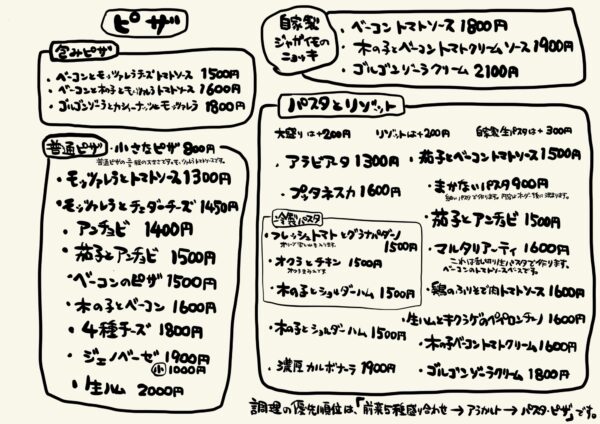 ピザ
包みピザ
・ベーコンとモッツァレラチーズトマトソース 1500円
・ベーコンと木の子とモッツァレラトマトソース 1600円
・ゴルゴンゾーラとカシューナッツとモッツァレラ 1800円
普通ピザ
・小さなピザ 800円
・モッツァレラとトマトソース 1300円
・モッツァレラとチェダーチーズ 1450円
・アンチョビ 1400円
・茄子とアンチョビ 1500円
・ベーコンのピザ 1500円
・木の子とベーコン 1600円
・4種チーズ 1800円
・ジェノベーゼ 1900円
小 1000円
・生ハム 2000円
自家製
ジャガイモの
ニョッキ
・ベーコントマトソース 1800円
・木の子とベーコントマトクリームソース 1900円
・ゴルゴンゾーラクリーム 2100円
パスタとリゾット
大盛りは+200円 リゾットは+200円 自家製生パスタは+300円
・アラビアータ 1300円
・プッタネスカ 1600円
冷製パスタ
・フレッシュトマトとグラナパダーノ
1500円
・オクラとチキン 1500円
・木の子とショルダーハム 1500円
・木の子とショルダーハム 1500円
・濃厚カルボナーラ 1900円
・茄子とベーコントマトソース 1500円
・まかないパスタ 900円
・茄子とアンチョビ 1500円
・マルタリアーティ 1600円
これは乱切り生パスタで作ります。
ベーコンのトマトソースベースです。
・鶏のふりそで肉トマトソース 1600円
・生ハムとキクラゲのペペロンチーノ 1600円
・木の子ベーコントマトクリーム 1600円
・ゴルゴンゾーラクリーム 1800円
調理の優先順位は、「前菜5種盛り合わせ→アラカルト→パスタ・ピザ」です。